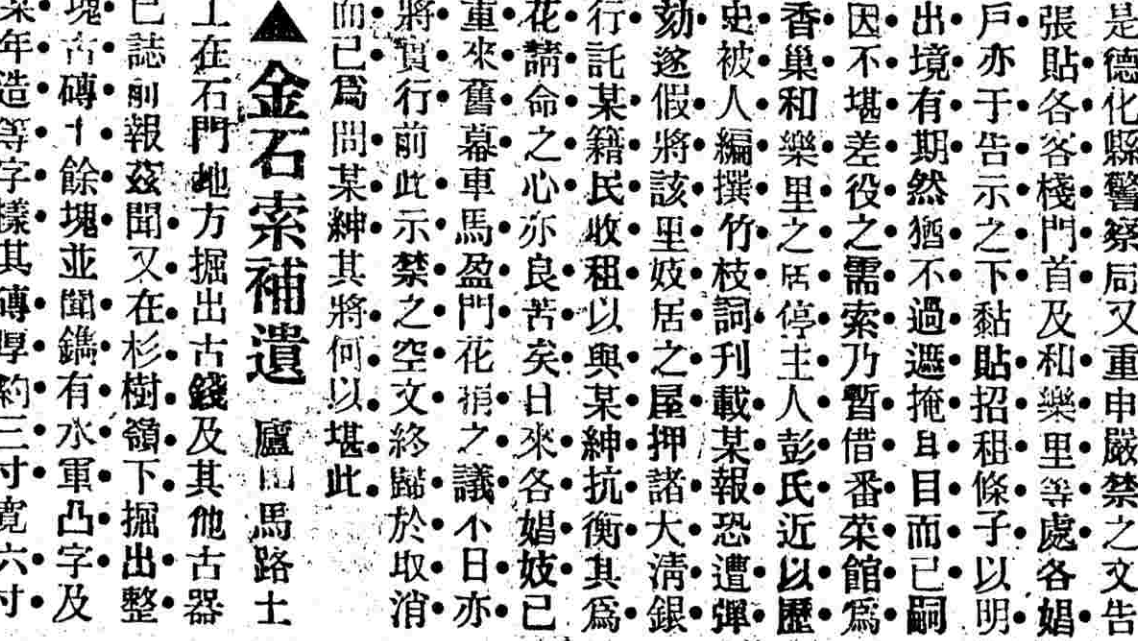 是德化縣警察局又重申嚴禁之文告
張貼各客棧門首及和樂里等處各娼
戶亦于告示之下黏貼招租條子以明
出境有期然猶不過遮掩耳目而已嗣
因不堪差役之需索乃暫借番菜館爲
香巢和樂里之居停主人彭氏近以歷
史被人編撰竹枝詞刊載某報恐遭彈
劾遂假將該里妓居之屋押諸大淸銀
行託某籍民收租以與某紳抗衡其爲
花請命之心亦良苦矣日來各娼妓已
重來舊幕車馬盈門花捐之議不日亦
將實行前此示禁之空文終歸於取消
而已爲問某紳其將何以堪此
▲金石索補遺 廬山馬路土
工在石門地方掘出古錢及其他古器
已誌前報茲聞又在杉樹嶺下掘出整
塊古磚十餘塊並聞鐫有水軍凸字及
某年造等字樣其磚厚約三寸寬六寸